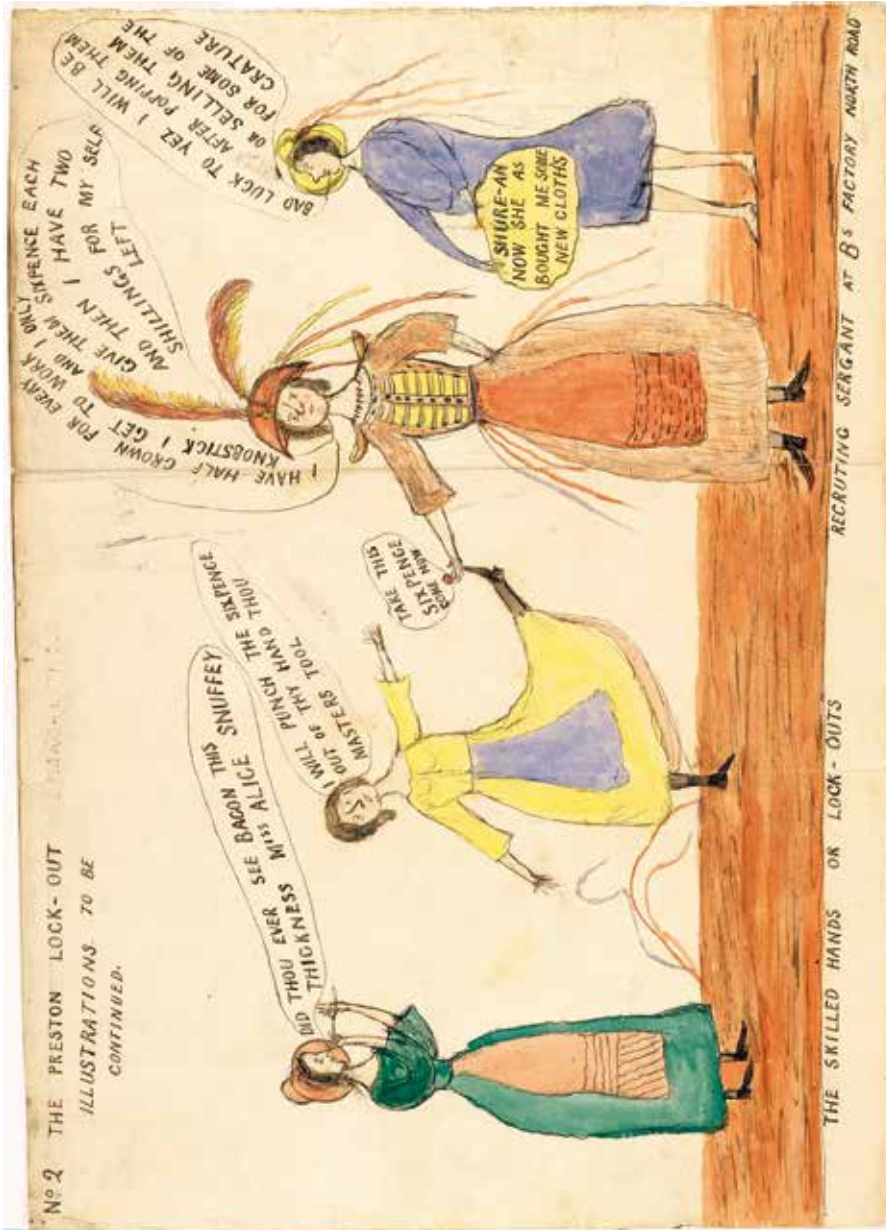 No 2 THE PRESTON LOCK-OUT
ILLUSTRATIONS TO BE
CONTINUED.
DID THOU EVER SEE BACON THIS
THICKNESS MISS ALICE SNUFFEY
I WILL PUNCH THE SIXPENCE
OUT OF THY HAND THOU
MASTERS TOOL
TAKE THIS
SIXPENCE
COME NOW
I HAVE HALF CROWN FOR EVERY
KNOBSTICK I GET TO WORK AND I ONLY
GIVE THEM SIXPENCE EACH
AND THEN I HAVE TWO
SHILLINGS LEFT FOR MY SELF
BAD LUCK TO YEZ I WILL BE
AFTER POPPING THEM
OR SELLING THEM
FOR SOME OF THE
CRATURE
SHURE-AN
NOW SHE AS
BOUGHT ME SOME
NEW CLOTHS
THE SKILLED HANDS OR LOCK-OUTS
RECRUTING SERGANT AT Bs FACTORY NORTH ROAD